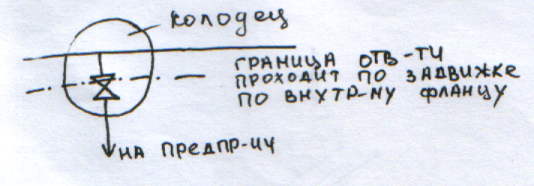 колодец
ГРАНИЦА ОТВ-ТИ
ПРОХОДИТ ПО ЗАДВИЖКЕ
ПО ВНУТР-МУ ФЛАНЦУ
НА ПРЕДПР-ИИ